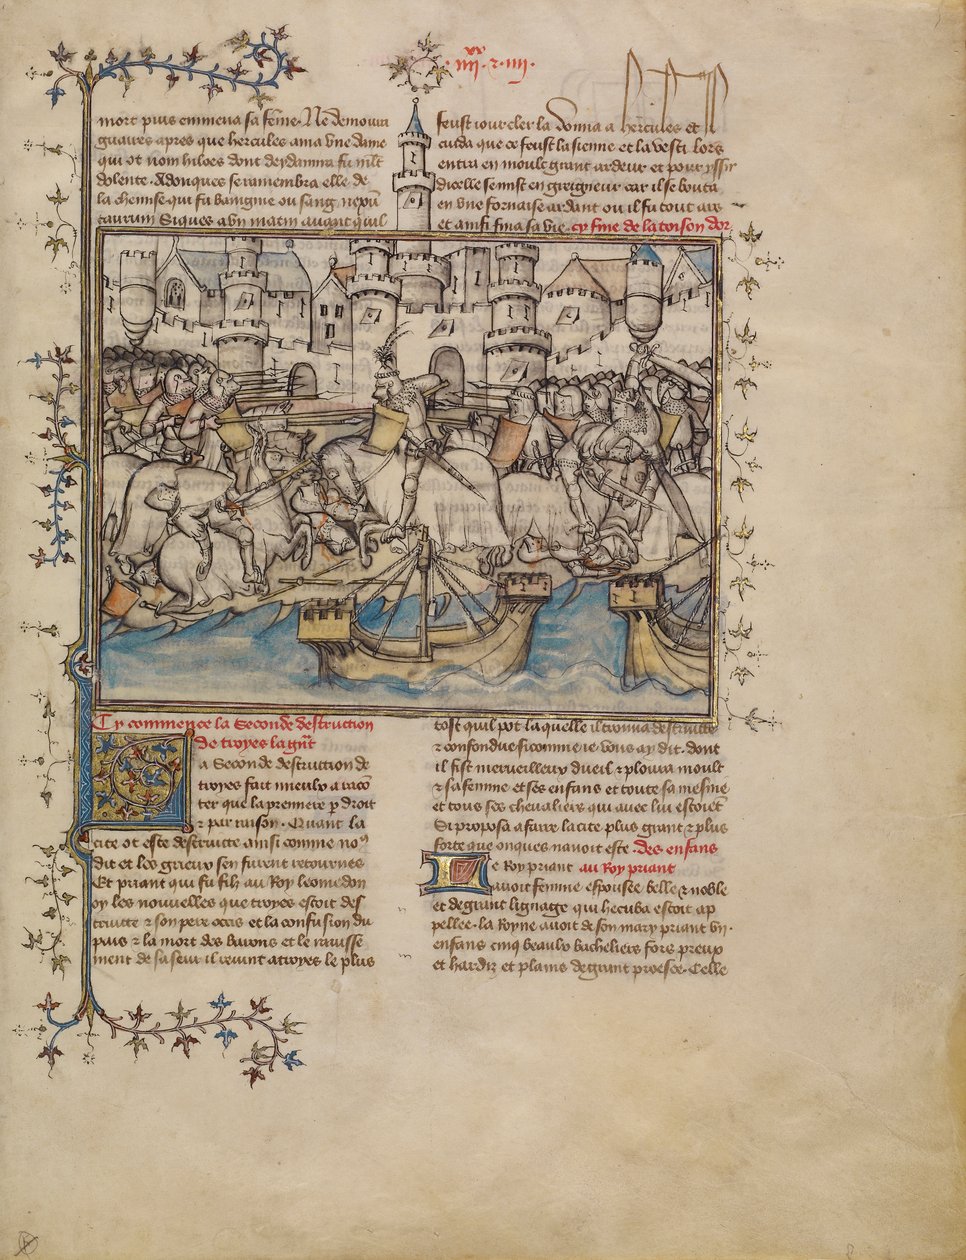 .iiii.xx.et.iiii.
mort puis emmena sa feme. Ne demoura
guaires apres que hercules ama vne dame
qui ot nom hiloes dont deydamia fu mlt
dolente. Adonques se ramembra elle de
la chemise qui fu baingnie ou sang nepu
taurum Si ques a vn matin auant quil
feust iour cler la donna a hercules et il
cuida que ce feust la sienne et la vesti lors
entra en moult grant ardeur et pour yssir
dicelle se mist en greigneur car il se bouta
en vne fornaise ardant ou il fu tout ars
et ainsi fina sa vie. cy fine de la toison dor.
Cy commence la seconde destruction
de troyes la grt
a seconde destruction de
troyes fait mieulx a raco
ter que la premiere p droit
et par raison. Quant la
cite ot este destruitte ainsi comme no9
dit et les grieux sen furent retournes
Et priant qui fu filz au Roy leomedon
oy les nouuelles que troyes estoit des
truitte et son pere occis et la confusion du
pais et la mort des barons et le rauisse
ment de sa seur il reuint a troyes le plus
tost quil pot laquelle il trouua destruitte
et confondue si comme ie vous ay dit. dont
il fist merueilleux dueil et ploura moult
et sa femme et ses enfans et toute sa mesnie
et tous ses cheualiers qui auec lui estoiet
Si proposa a faire la cite plus grant et plus
forte que onques nauoit este. des enfans
e Roy priant au Roy priant
auoit femme espousee belle et noble
et de grant lignage qui hecuba estoit ap
pellee. la Royne auoit de son mary priant v.
enfans cinq beaulx bacheliers fors preux
et hardiz et plains de grant proesce. Celle